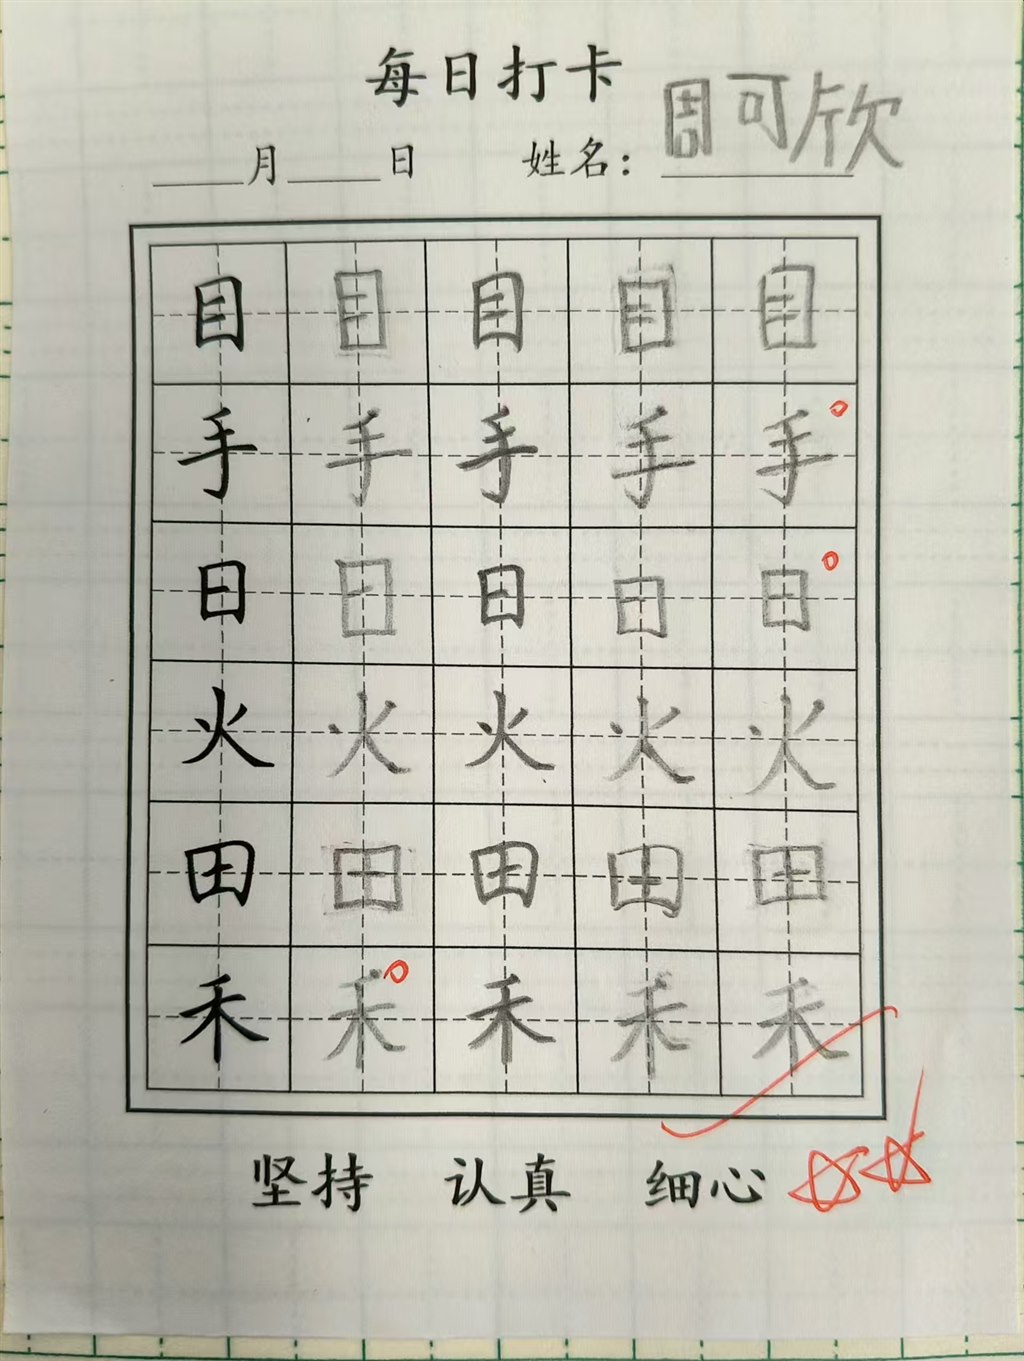 每日打卡
月 日 姓名：周可欣
目 目 目 目 目
手 手 手 手 手
日 日 日 日 日
火 火 火 火 火
田 田 田 田 田
禾 禾 禾 禾 禾
坚持 认真 细心